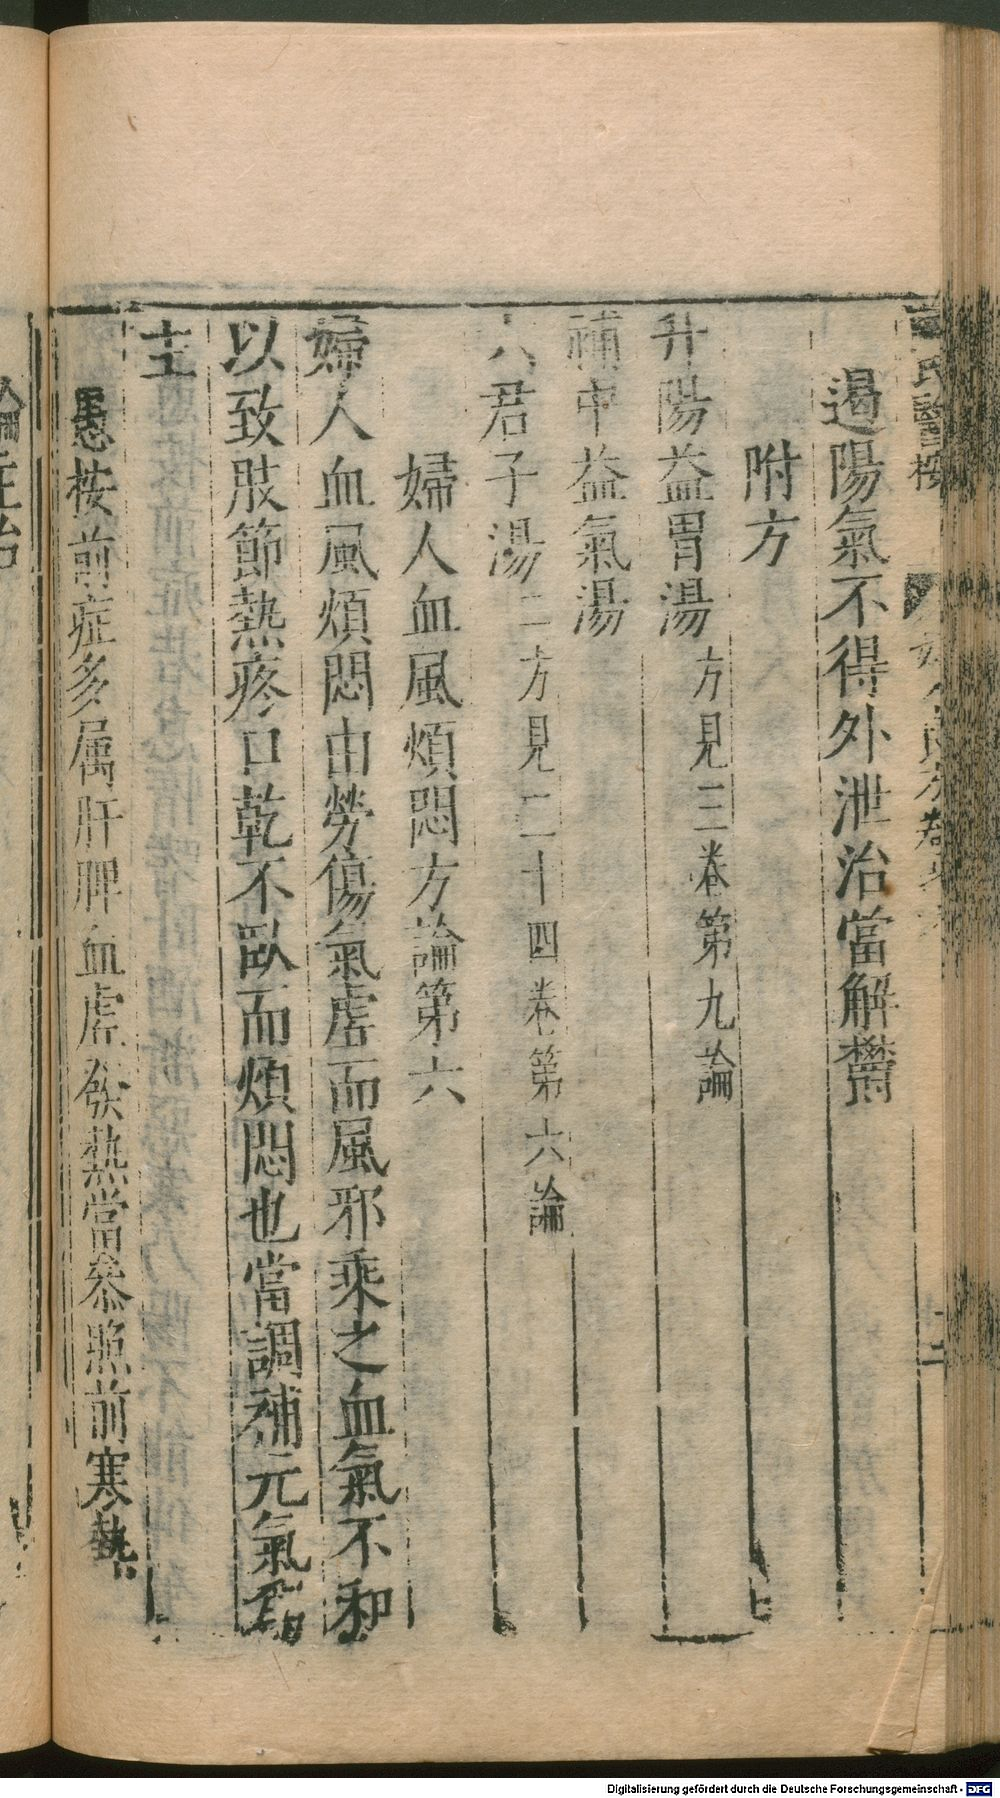 氏醫按
遏陽氣不得外泄治當解鬱
附方
升陽益胃湯方見三卷第九論
補中益氣湯
六君子湯二方見二十四卷第六論
婦人血風煩悶方論第六
婦人血風煩悶由勞傷氣虛而風邪乘之血氣不和
以致肢節熱疼口乾不臥而煩悶也當調補元氣爲
主
愚按前症多属肝脾血虛發熱當叅照前寒熱
論主治
Digitalisierung gefördert durch die Deutsche Forschungsgemeinschaft - DFG